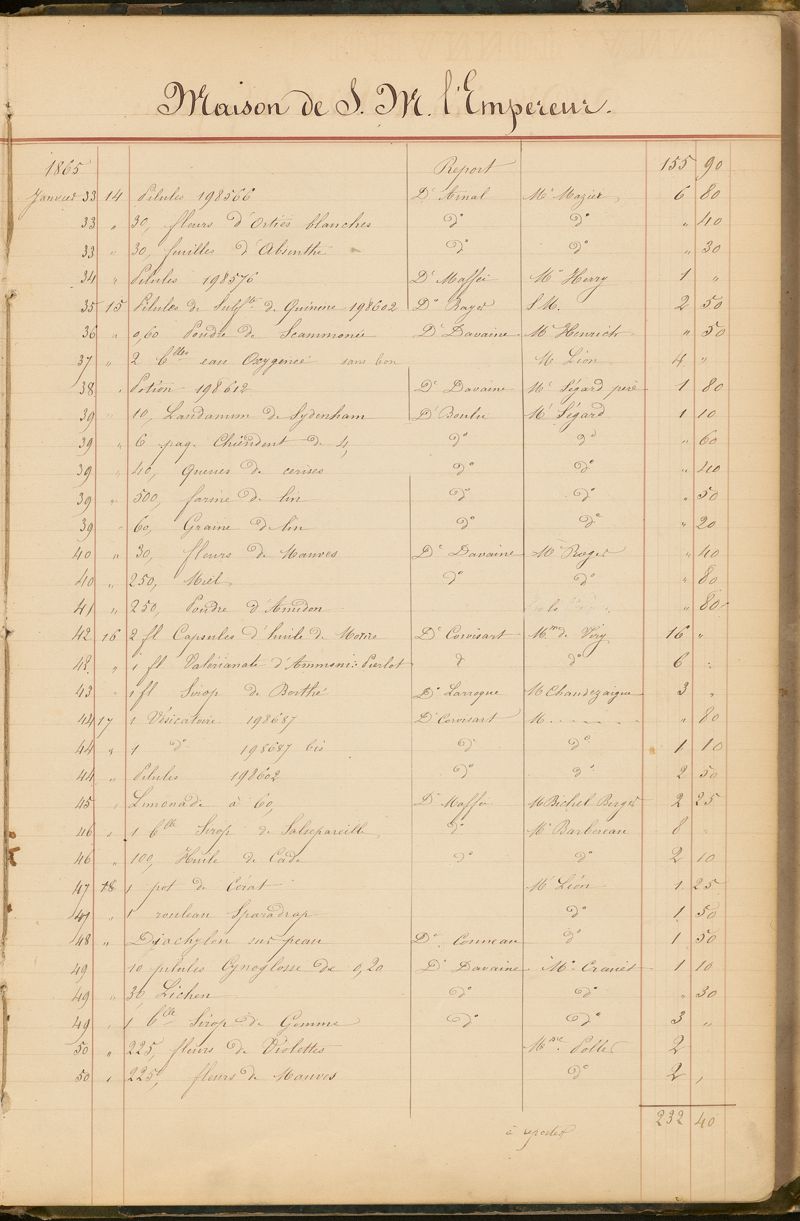 Maison de S. M. l'Empereur.
1865 Report 155 90
Janvier 33 14 Pilules 198566 Dr Arnal Mr Mazier 6 80
33 " 30, fleurs d'Orties blanches do do " 40
33 " 30, feuilles d'Absinthe do do " 30
34 " Pilules 198576 Dr Maffei Mr Henry 1 "
35 15 Pilules de Sulfte de Quinine 198602 Dr Rayer S.M. 2 50
36 " 0,60 Poudre de Scammonée Dr Davaine Mr Henrich " 50
37 " 2 blles eau Oxygenée sans bon Mr Léon 4 "
38 " Potion 198612 Dr Davaine Mr Ségard père 1 80
39 " 10, Laudanum de Sydenham Dr Boulu Mr Ségard 1 10
39 " 6 paq. Chiendent de 4, do do " 60
39 " 40, Queues de cerises do do " 40
39 " 500, farine de lin do do " 50
39 " 60, Graine de lin do do " 20
40 " 30, fleurs de Mauves Dr Davaine Mr Roger " 40
40 " 250, Miel do do " 80
41 " 250, Poudre d'Amidon " 80
42 16 2 fl Capsules d'huile de Morue Dr Corvisart Mme de Viry 16 "
42 " 1 fl Valérianate d'Ammoni: Pierlot do do 6 "
43 " 1 fl Sirop de Berthé Dr Larroque Mr Chaudezaigue 3 "
44 17 1 Vésicatoire 198687 Dr Corvisart M. - - - - - " 80
44 " 1 do 198687 bis do do 1 10
44 " Pilules 198602 do do 2 50
45 " Limonade à 60, Dr Maffei Mr Bichel Berger 2 25
46 " 1 blle Sirop de Salsepareille do Mr Barbereau 8 "
46 " 100, Huile de Cade do do 2 10
47 18 1 pot de Cérat Mr Léon 1 25
47 " 1 rouleau Sparadrap do 1 50
48 " Diachylon sur peau Dr Conneau do 1 50
49 10 pilules Cynoglosse de 0,20 Dr Davaine Mr Cranet 1 10
49 " 30 Lichen do do " 30
49 " 1 blle Sirop de Gomme do do 3 "
50 " 225, fleurs de Violettes Mme Pollet 2
50 " 225, fleurs de Mauves do 2 "
à reporter 232 40